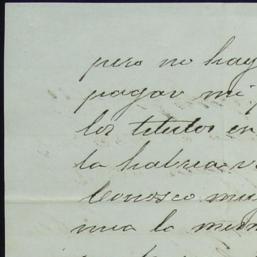 pero no hay
pagar mi
los titulos en
la habria v
Conosco mu
nua la mem